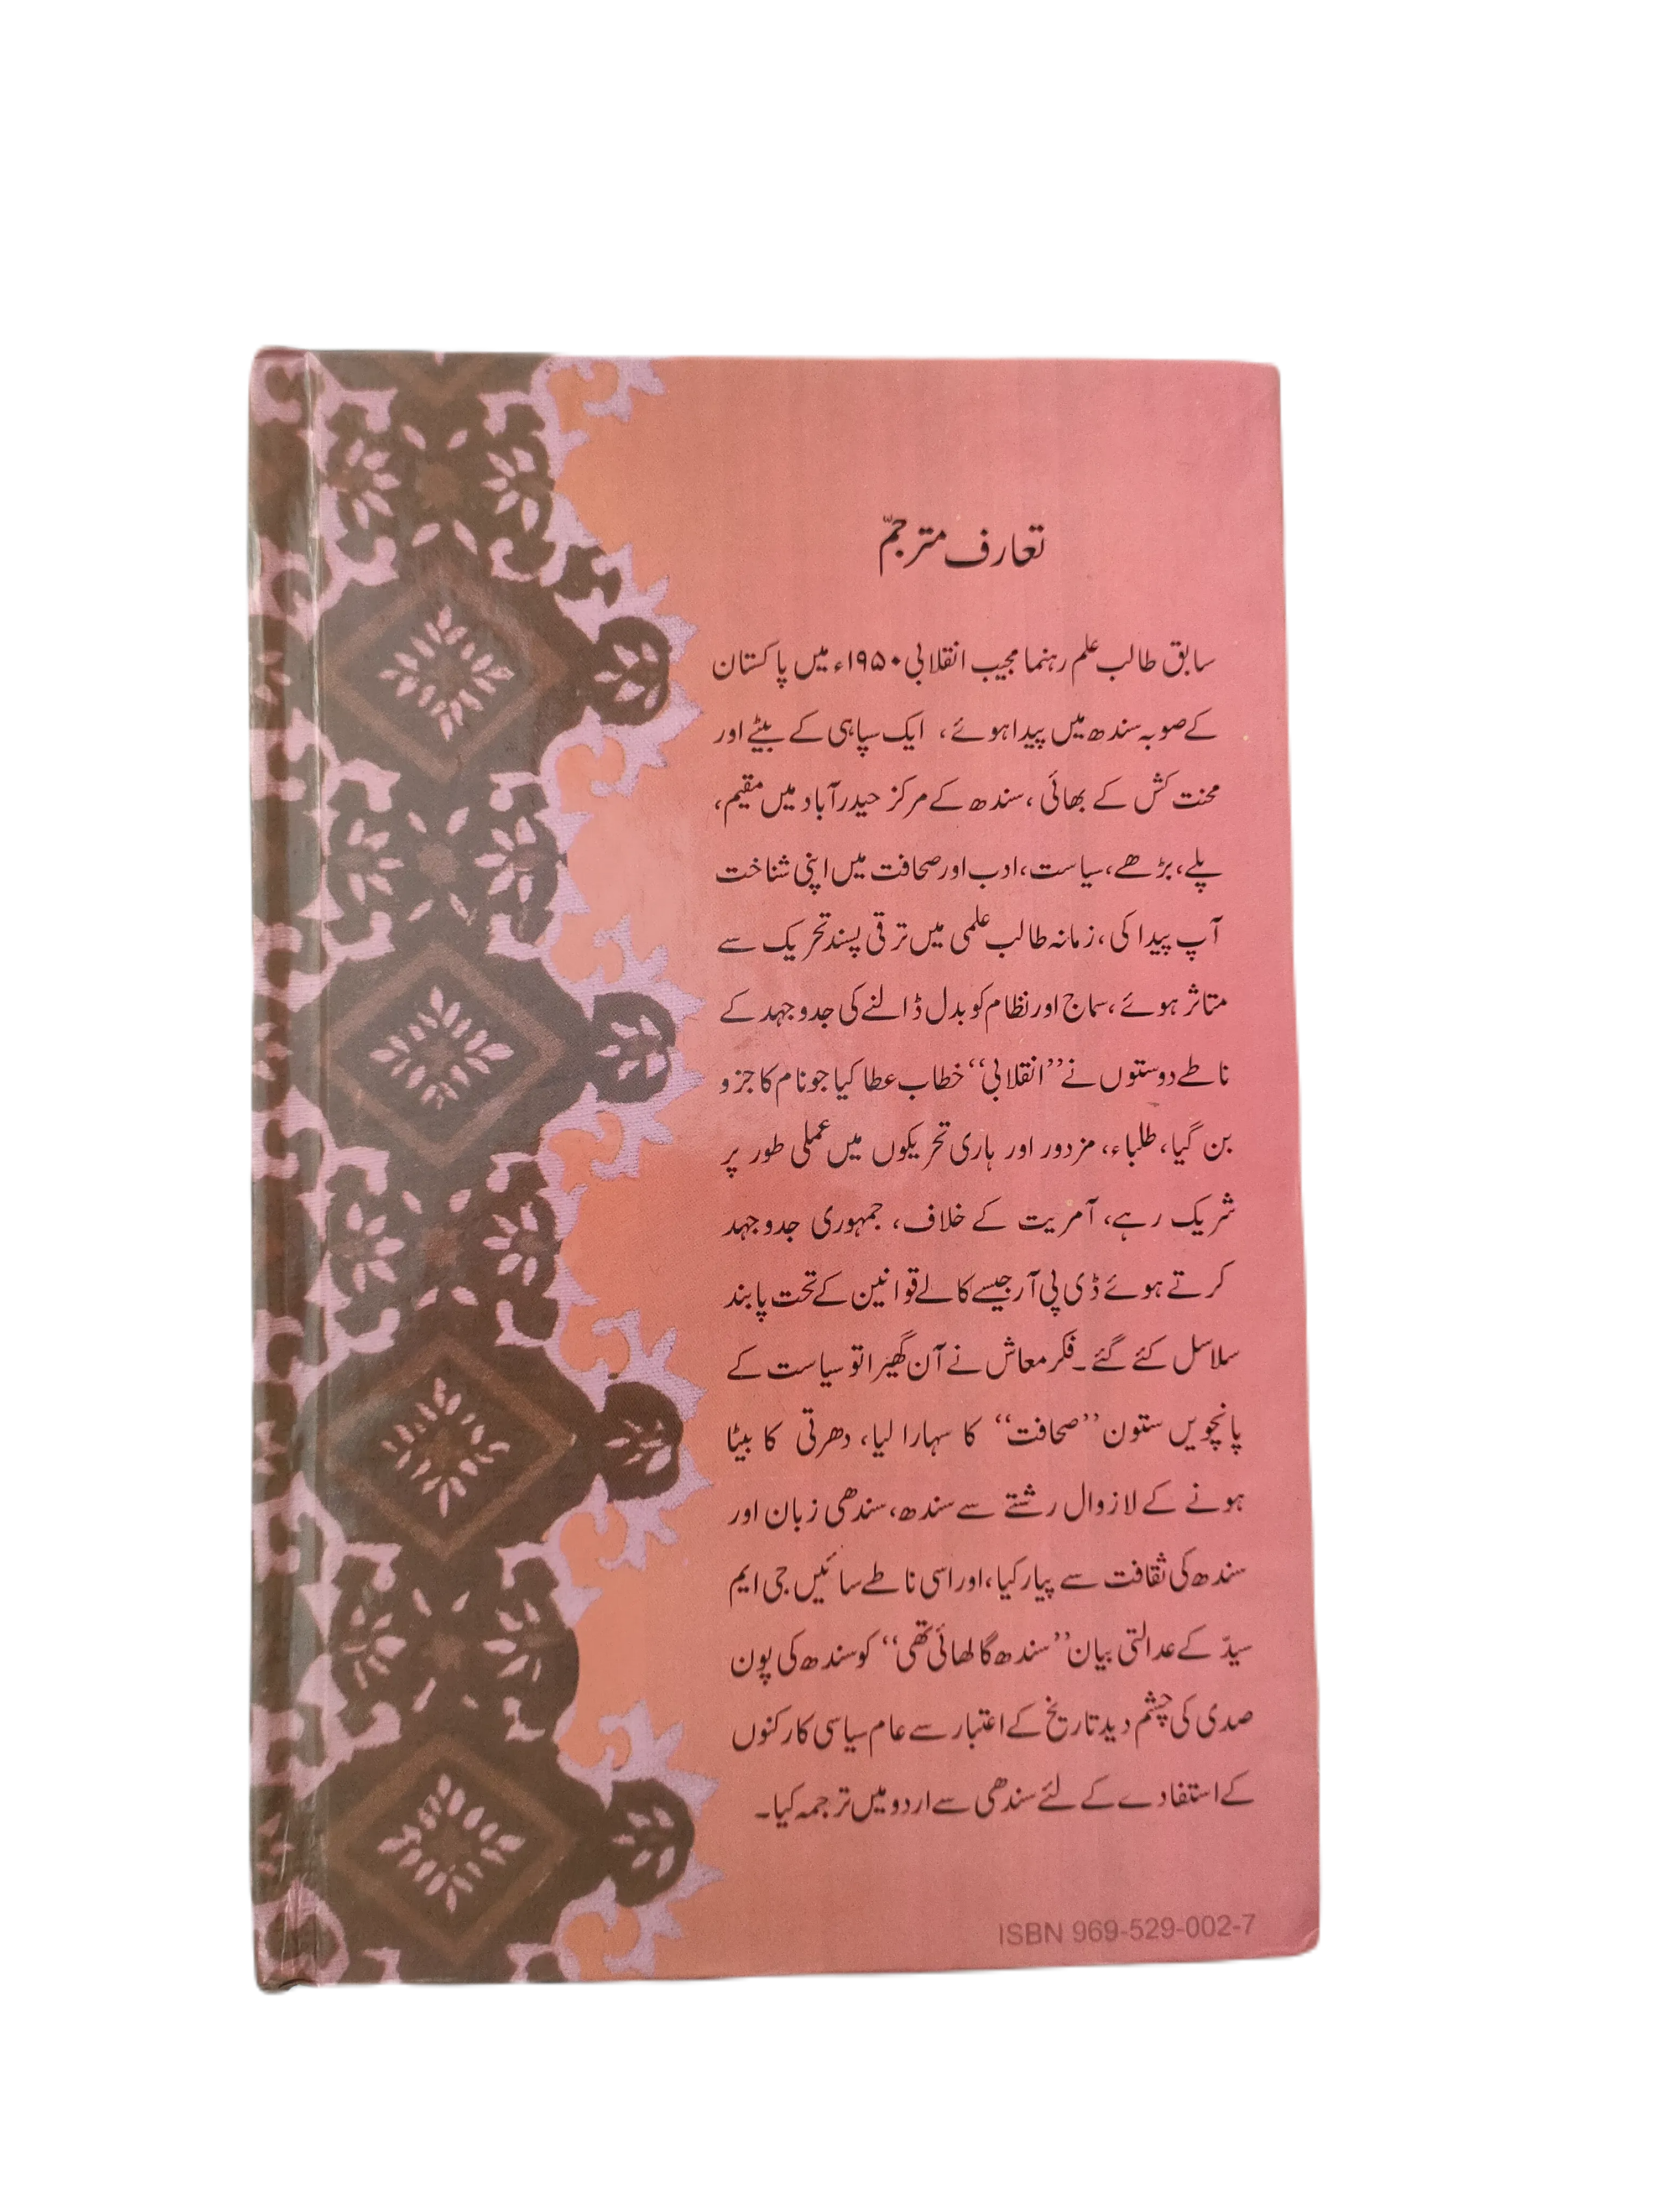 تعارف مترجمّ
سابق طالب علم رہنما مجیب انقلابی ۱۹۵۰ء میں پاکستان
کے صوبہ سندھ میں پیدا ہوئے، ایک سپاہی کے بیٹے اور
محنت کش کے بھائی، سندھ کے مرکز حیدر آباد میں مقیم،
پلے، بڑھے، سیاست، ادب اور صحافت میں اپنی شناخت
آپ پیدا کی، زمانہ طالب علمی میں ترقی پسند تحریک سے
متاثر ہوئے، سماج اور نظام کو بدل ڈالنے کی جدوجہد کے
ناطے دوستوں نے ’’انقلابی‘‘ خطاب عطا کیا جو نام کا جزو
بن گیا، طلباء، مزدور اور ہاری تحریکوں میں عملی طور پر
شریک رہے، آمریت کے خلاف، جمہوری جدوجہد
کرتے ہوئے ڈی پی آر جیسے کالے قوانین کے تحت پابند
سلاسل کئے گئے۔ فکر معاش نے آن گھیرا تو سیاست کے
پانچویں ستون ’’صحافت‘‘ کا سہارا لیا، دھرتی کا بیٹا
ہونے کے لازوال رشتے سے سندھ، سندھی زبان اور
سندھ کی ثقافت سے پیار کیا، اور اسی ناطے سائیں جی ایم
سیدّ کے عدالتی بیان ’’سندھ گالھائی تھی‘‘ کو سندھ کی پون
صدی کی چشم دید تاریخ کے اعتبار سے عام سیاسی کارکنوں
کے استفادے کے لئے سندھی سے اردو میں ترجمہ کیا۔
ISBN 969-529-002-7